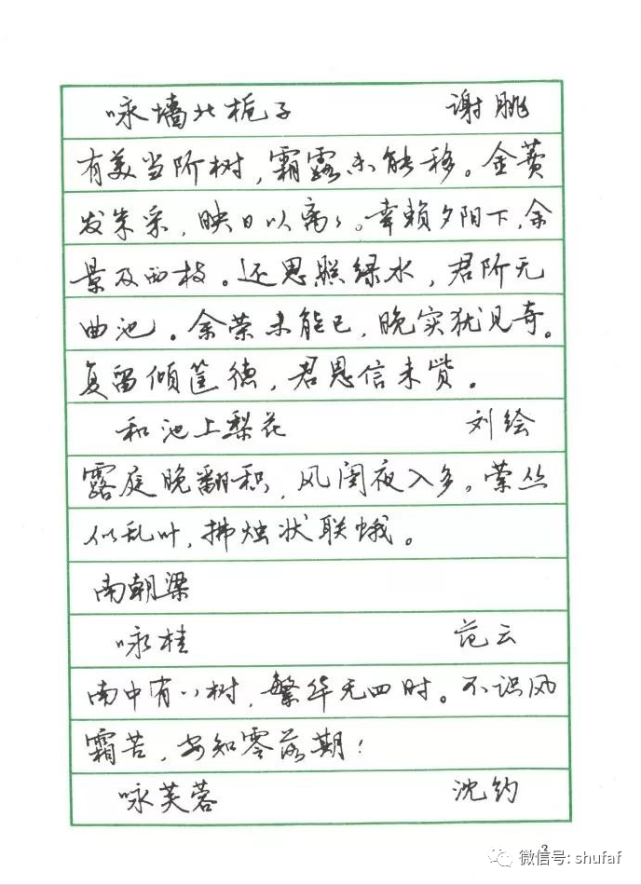 咏墙北栀子 谢朓
有美当阶树，霜露未能移。金蕡
发朱采，映日以离々。幸赖夕阳下，余
景及西枝。还思照绿水，君阶无
曲池。余荣未能已，晚实犹见奇。
复留倾筐德，君恩信未赀。
和池上梨花 刘绘
露庭晚翻积，风闺夜入多。萦丛
似乱叶，拂烛状联蛾。
南朝梁
咏桂 范云
南中有八树，繁华无四时。不识风
霜苦，安知零落期！
咏芙蓉 沈约
2
微信号: shufaf